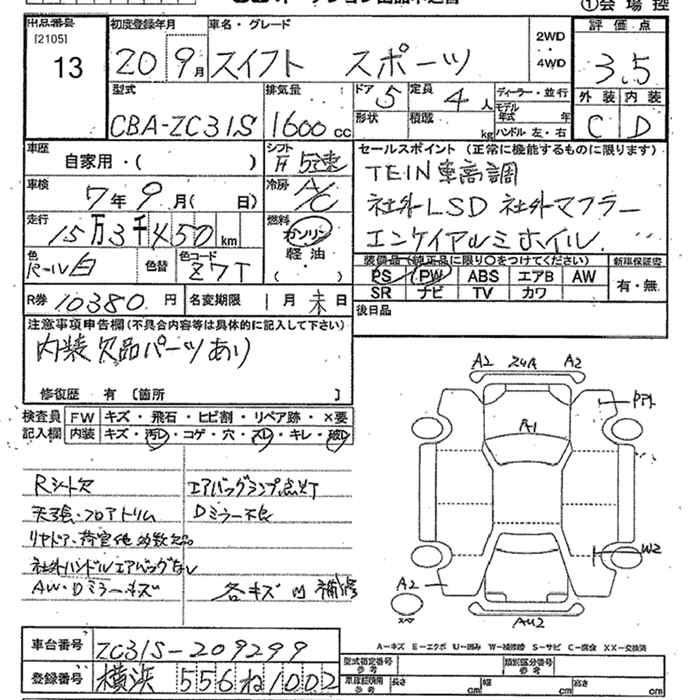 ①会場控
出品番号
[2105]
13
初度登録年月
20 9月
車名・グレード
スイフト スポーツ
2WD
4WD
評価点
3.5
外装 内装
C D
型式
CBA-ZC31S
排気量
1600cc
ドア
5
形状
定員
4人
積載
kg
ディーラー・並行
モデル年式 年
ハンドル左・右
車歴
自家用・( )
シフト
F 5速
セールスポイント (正常に機能するものに限ります)
TEIN車高調
社外LSD 社外マフラー
エンケイアルミホイル
車検
7年9月( 日)
冷房
A/C
走行
15万3千450km
燃料
ガソリン
軽油
( )
色
パール白
色替
色コード
Z7T
装備品(純正品に限り○をつけてください)
PS PW ABS エアB AW
SR ナビ TV カワ
新車保証書
有・無
R券 10380円
名変期限 1月末日
後日品
注意事項申告欄(不具合内容等は具体的に記入して下さい)
内装欠品パーツあり
修復歴 有 [箇所 ]
検査員
記入欄
FW キズ・飛石・ヒビ割・リペア跡・×要
内装 キズ・汚れ・コゲ・穴・スレ・キレ・破れ
Rシート欠
エアバッグランプ点灯
天張・フロアトリム
Dミラー不良
リヤドア・荷室他多数欠品
社外ハンドルエアバッグなし
AW・Dミラーキズ
各キズ凹補修
A2
A2
A1
W2
A2
AU2
車台番号 ZC31S-209299
登録番号 横浜 556 ね1002
A-キズ E-エクボ U-凹み W-補修跡 S-サビ C-腐食 XX-交換済
型式指定番号
参考
類別区分番号
参考
車庫証明用
参考
長さ cm 幅 cm 高さ cm